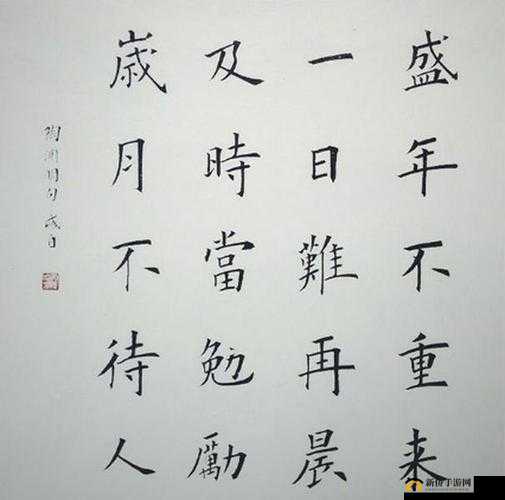 盛年不重来
一日難再晨
及時當勉勵
歲月不待人
陶渊明句
新佰手游网